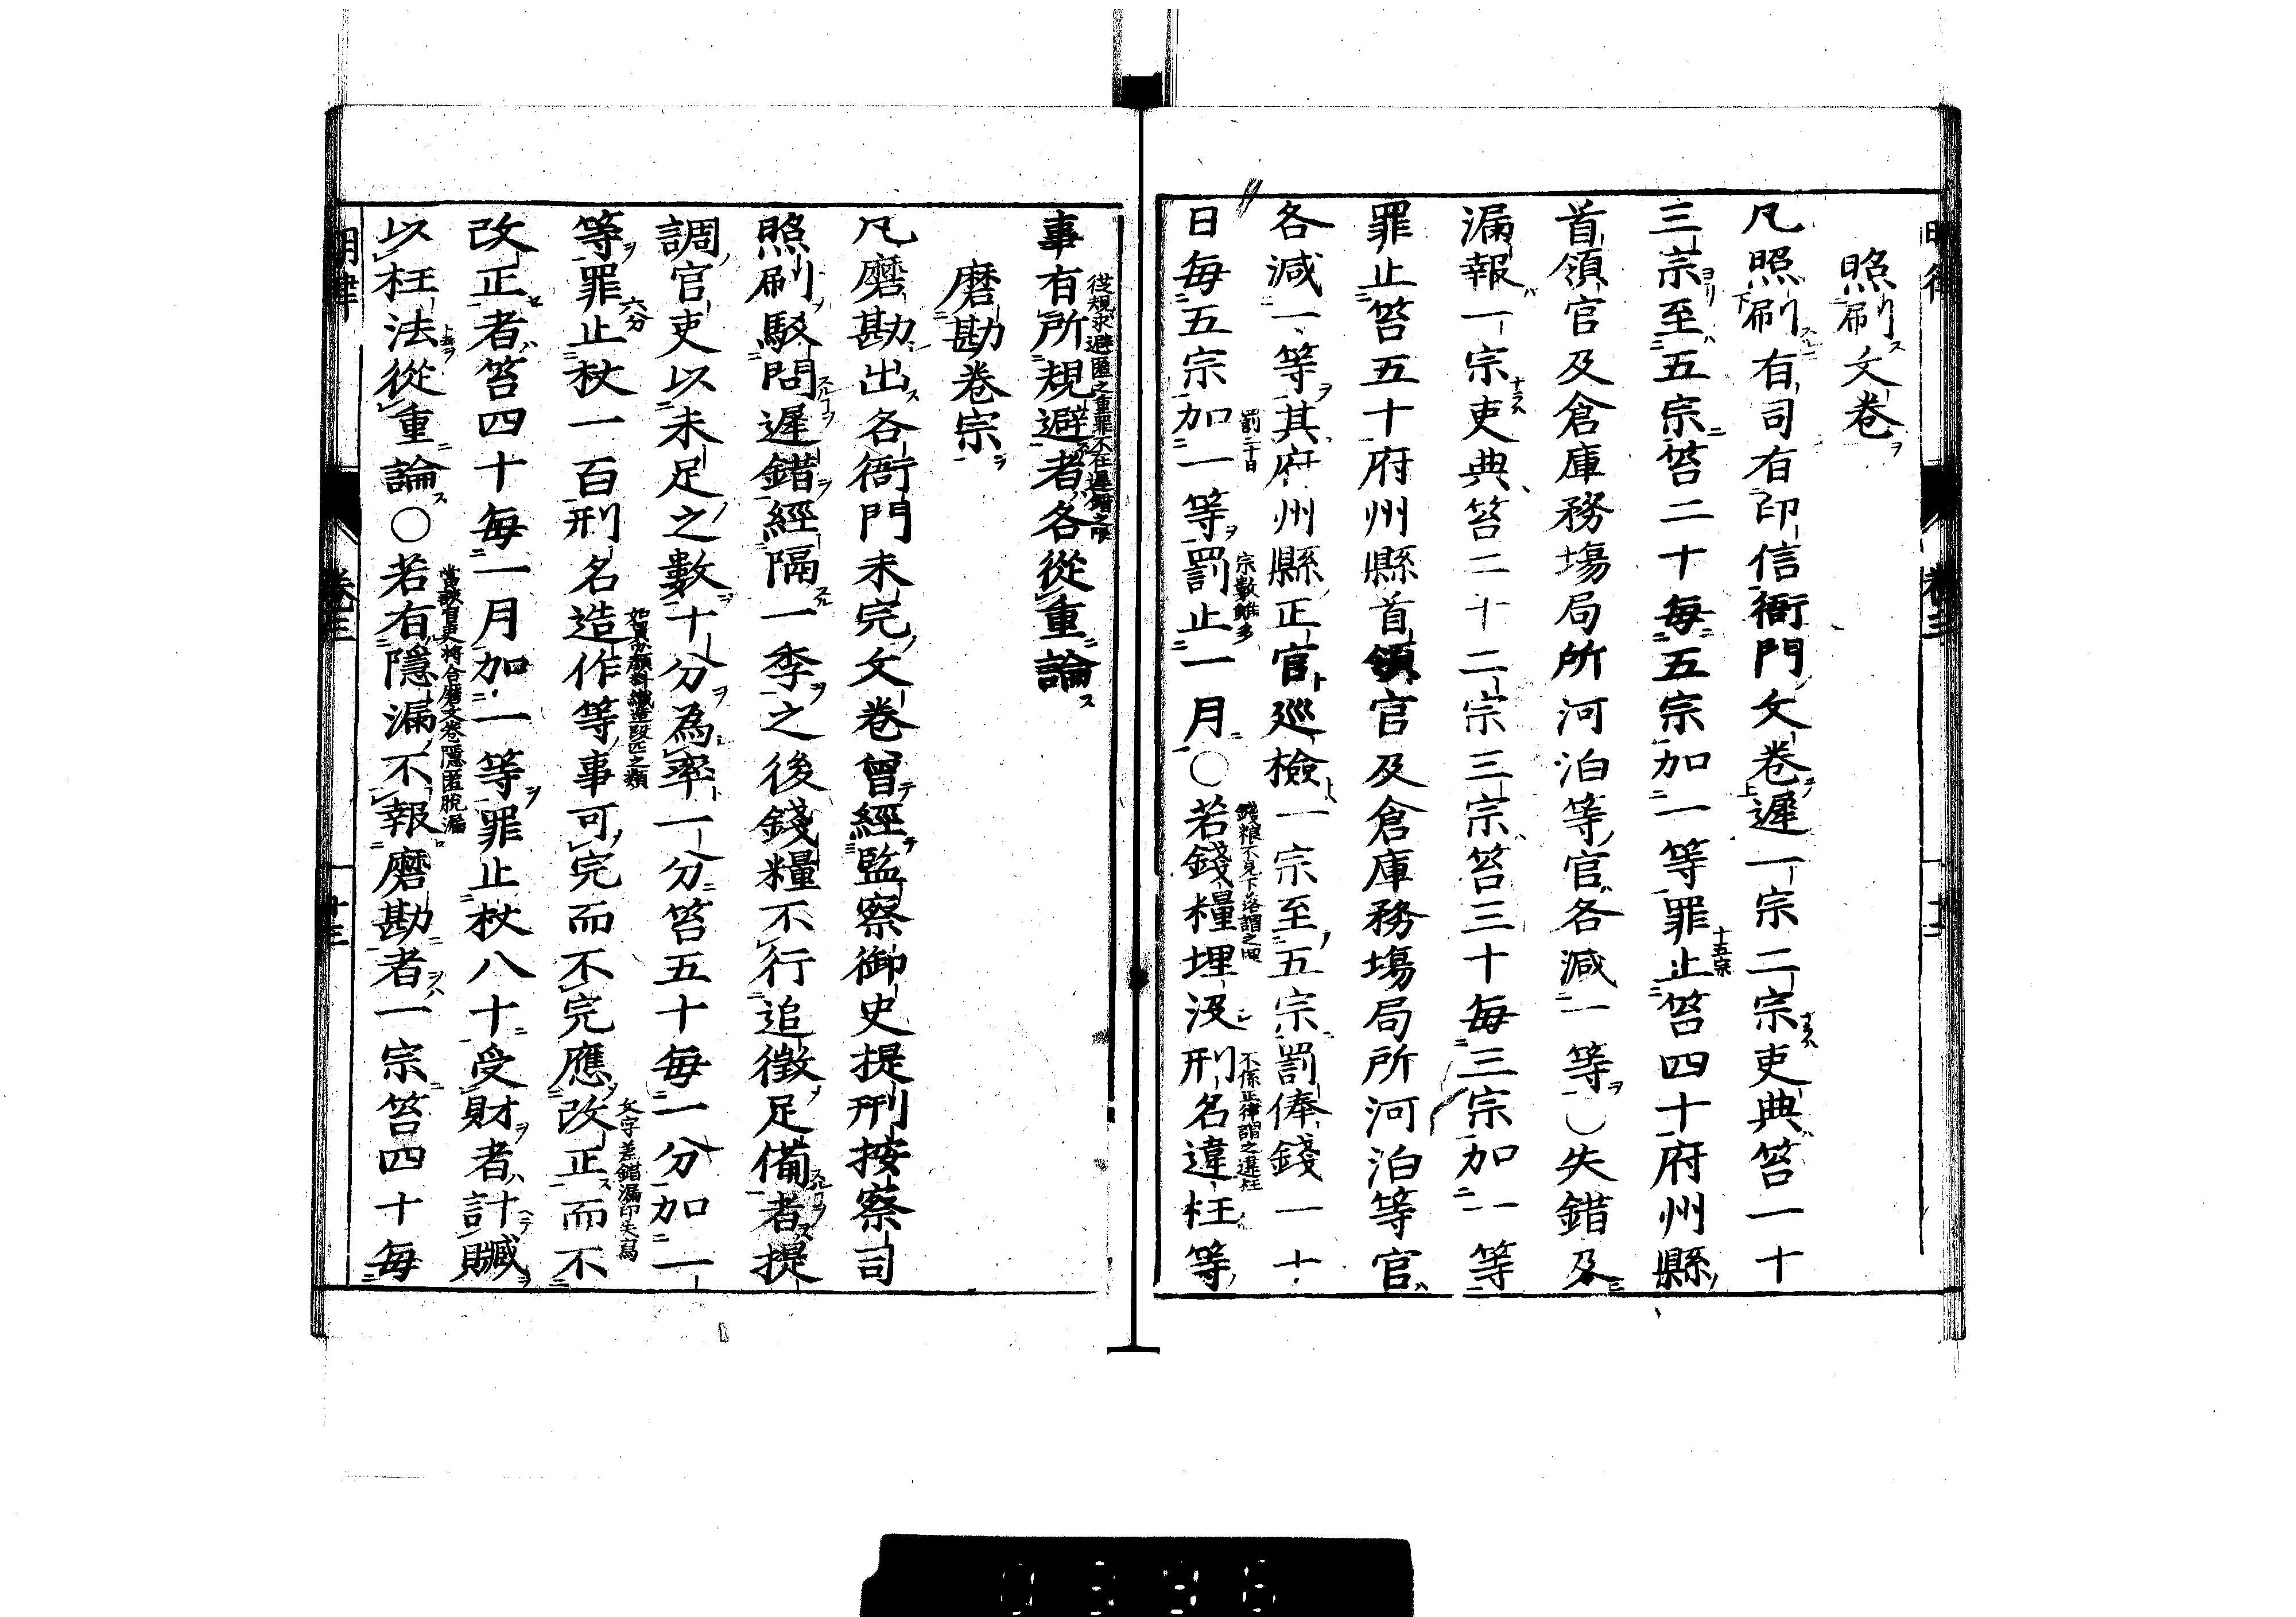 照刷文卷
凡照刷有司有印信衙門文卷遲一宗二宗吏典笞一十
三宗至五宗笞二十每五宗加一等罪止笞四十府州縣
十五宗
首領官及倉庫務塲局所河泊等官各減一等○失錯及
漏報一宗吏典笞二十二宗三宗笞三十每三宗加一等
罪止笞五十府州縣首領官及倉庫務塲局所河泊等官
各減一等其府州縣正官巡檢一宗至五宗罰俸錢一十
日每五宗加一等罰止一月○若錢糧埋沒刑名違枉等
罰二十日
宗數雖多
錢粮不見下落謂之埋
不係正律謂之違枉
卷三
事有所規避者各從重論
從規求避匿之重罪不在遲錯之限
磨勘卷宗
凡磨勘出各衙門未完文卷曾經監察御史提刑按察司
照刷駁問遲錯經隔一季之後錢糧不行追徵足備者提
調官吏以未足之數十分為率一分笞五十每一分加一
等罪止杖一百刑名造作等事可完而不完應改正而不
六分
織造段匹之類
文字差錯漏印失寫
改正者笞四十每一月加一等罪止杖八十受財者計贓
以枉法從重論○若有隱漏不報磨勘者一宗笞四十每
當該官吏將合磨文卷隱匿脫漏
明律
卷三
十三